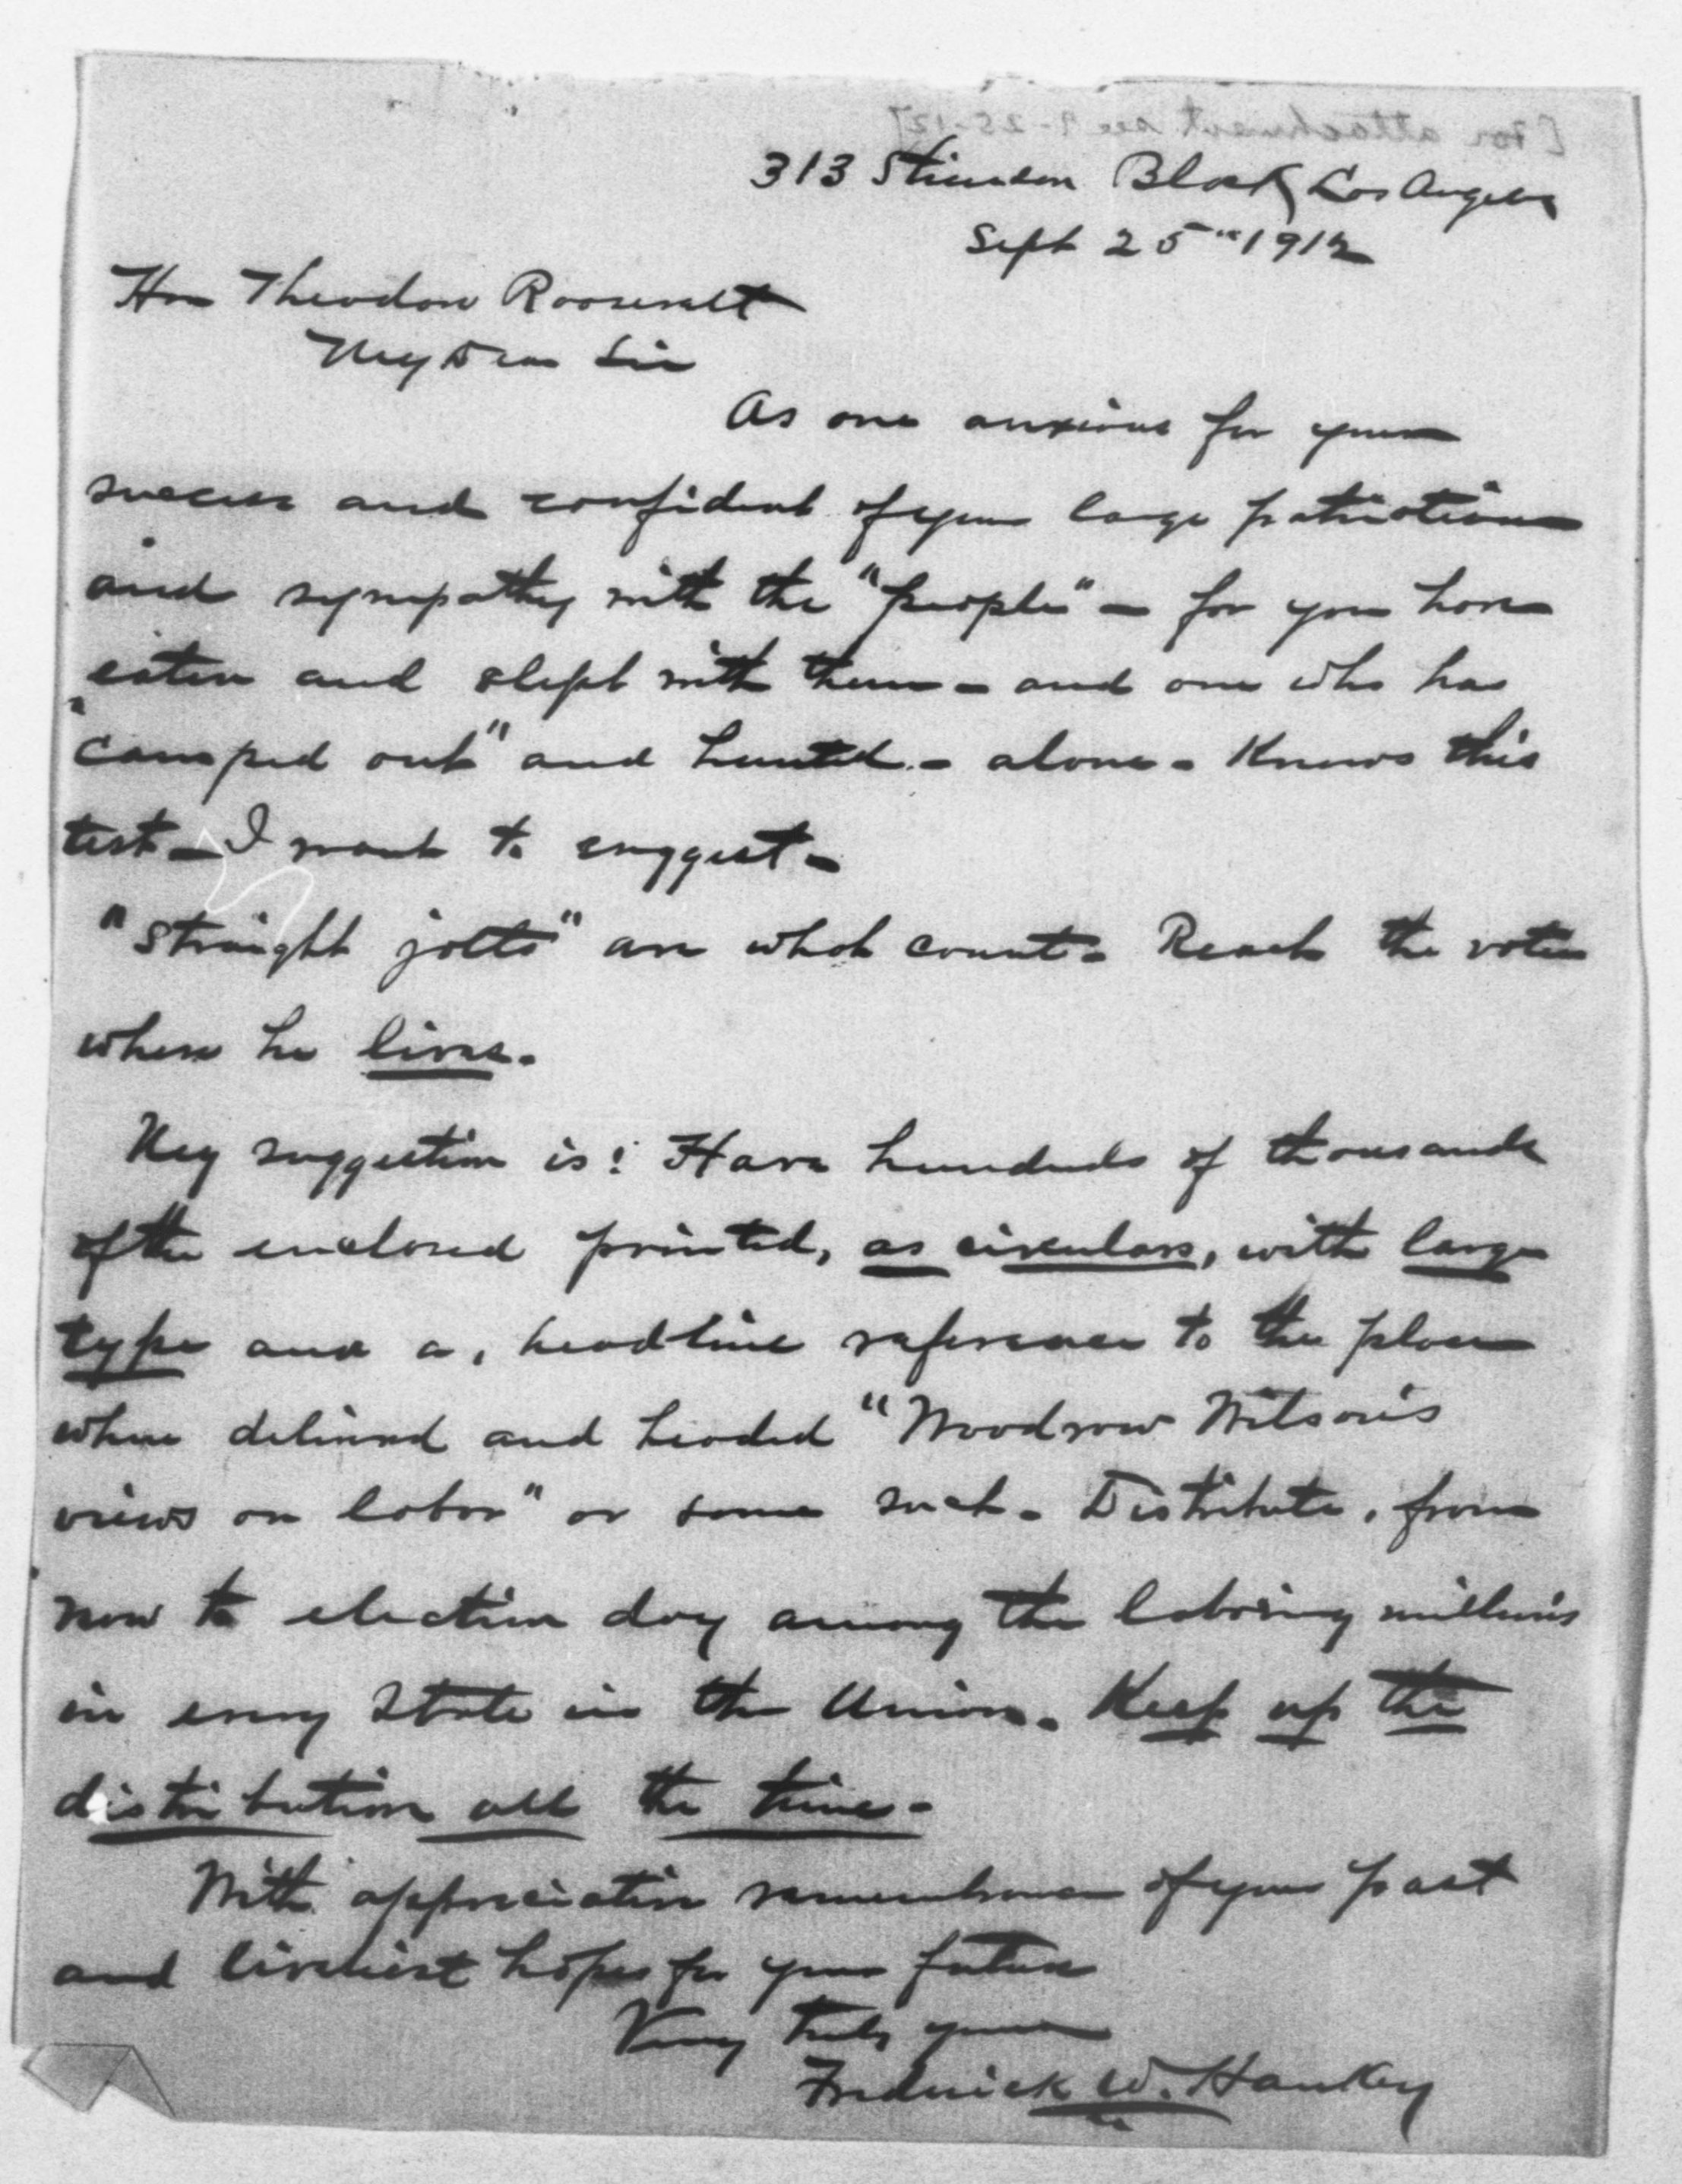 [For attachment see 9-25-12]
313 Stimson Block, Los Angeles
Sept 25th 1912
Hon Theodore Roosevelt
My Dear Sir
As one anxious for your
success and confident of your large patriotism
and sympathy with the "people" - for you have
eaten and slept with them - and one who has
"camped out" and hunted - alone - knows this
test - I want to suggest -
"Straight jolts" are what count - Reach the voter
where he lives.
My suggestion is: Have hundreds of thousands
of the enclosed printed, as circulars, with large
type and a, headline reference to the place
where delivered and headed "Woodrow Wilson's
views on labor" or some such - Distribute, from
now to election day among the laboring millions
in every State in the Union. Keep up the
distribution all the time -
With appreciative remembrance of your past
and liveliest hopes for your future
Very truly yours
Frederick W. Hankey